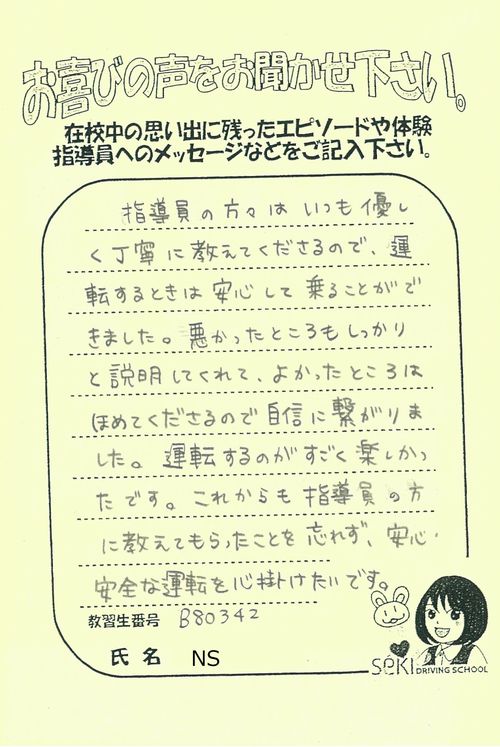 お喜びの声をお聞かせ下さい。
在校中の思い出に残ったエピソードや体験
指導員へのメッセージなどをご記入下さい。
指導員の方々は いつも優し
く丁寧に教えてくださるので、運
転するときは安心して乗ることがで
きました。悪かったところもしっかり
と説明してくれて、よかったところは
ほめてくださるので自信に繋がりま
した。運転するのがすごく楽しかっ
たです。これからも指導員の方
に教えてもらったことを忘れず、安心・
安全な運転を心掛けたいです。
教習生番号 B80342
氏名 NS
SEKI DRIVING SCHOOL